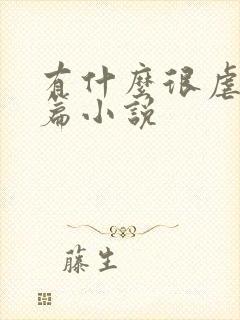 有什麼很虐
篇小說
藤生